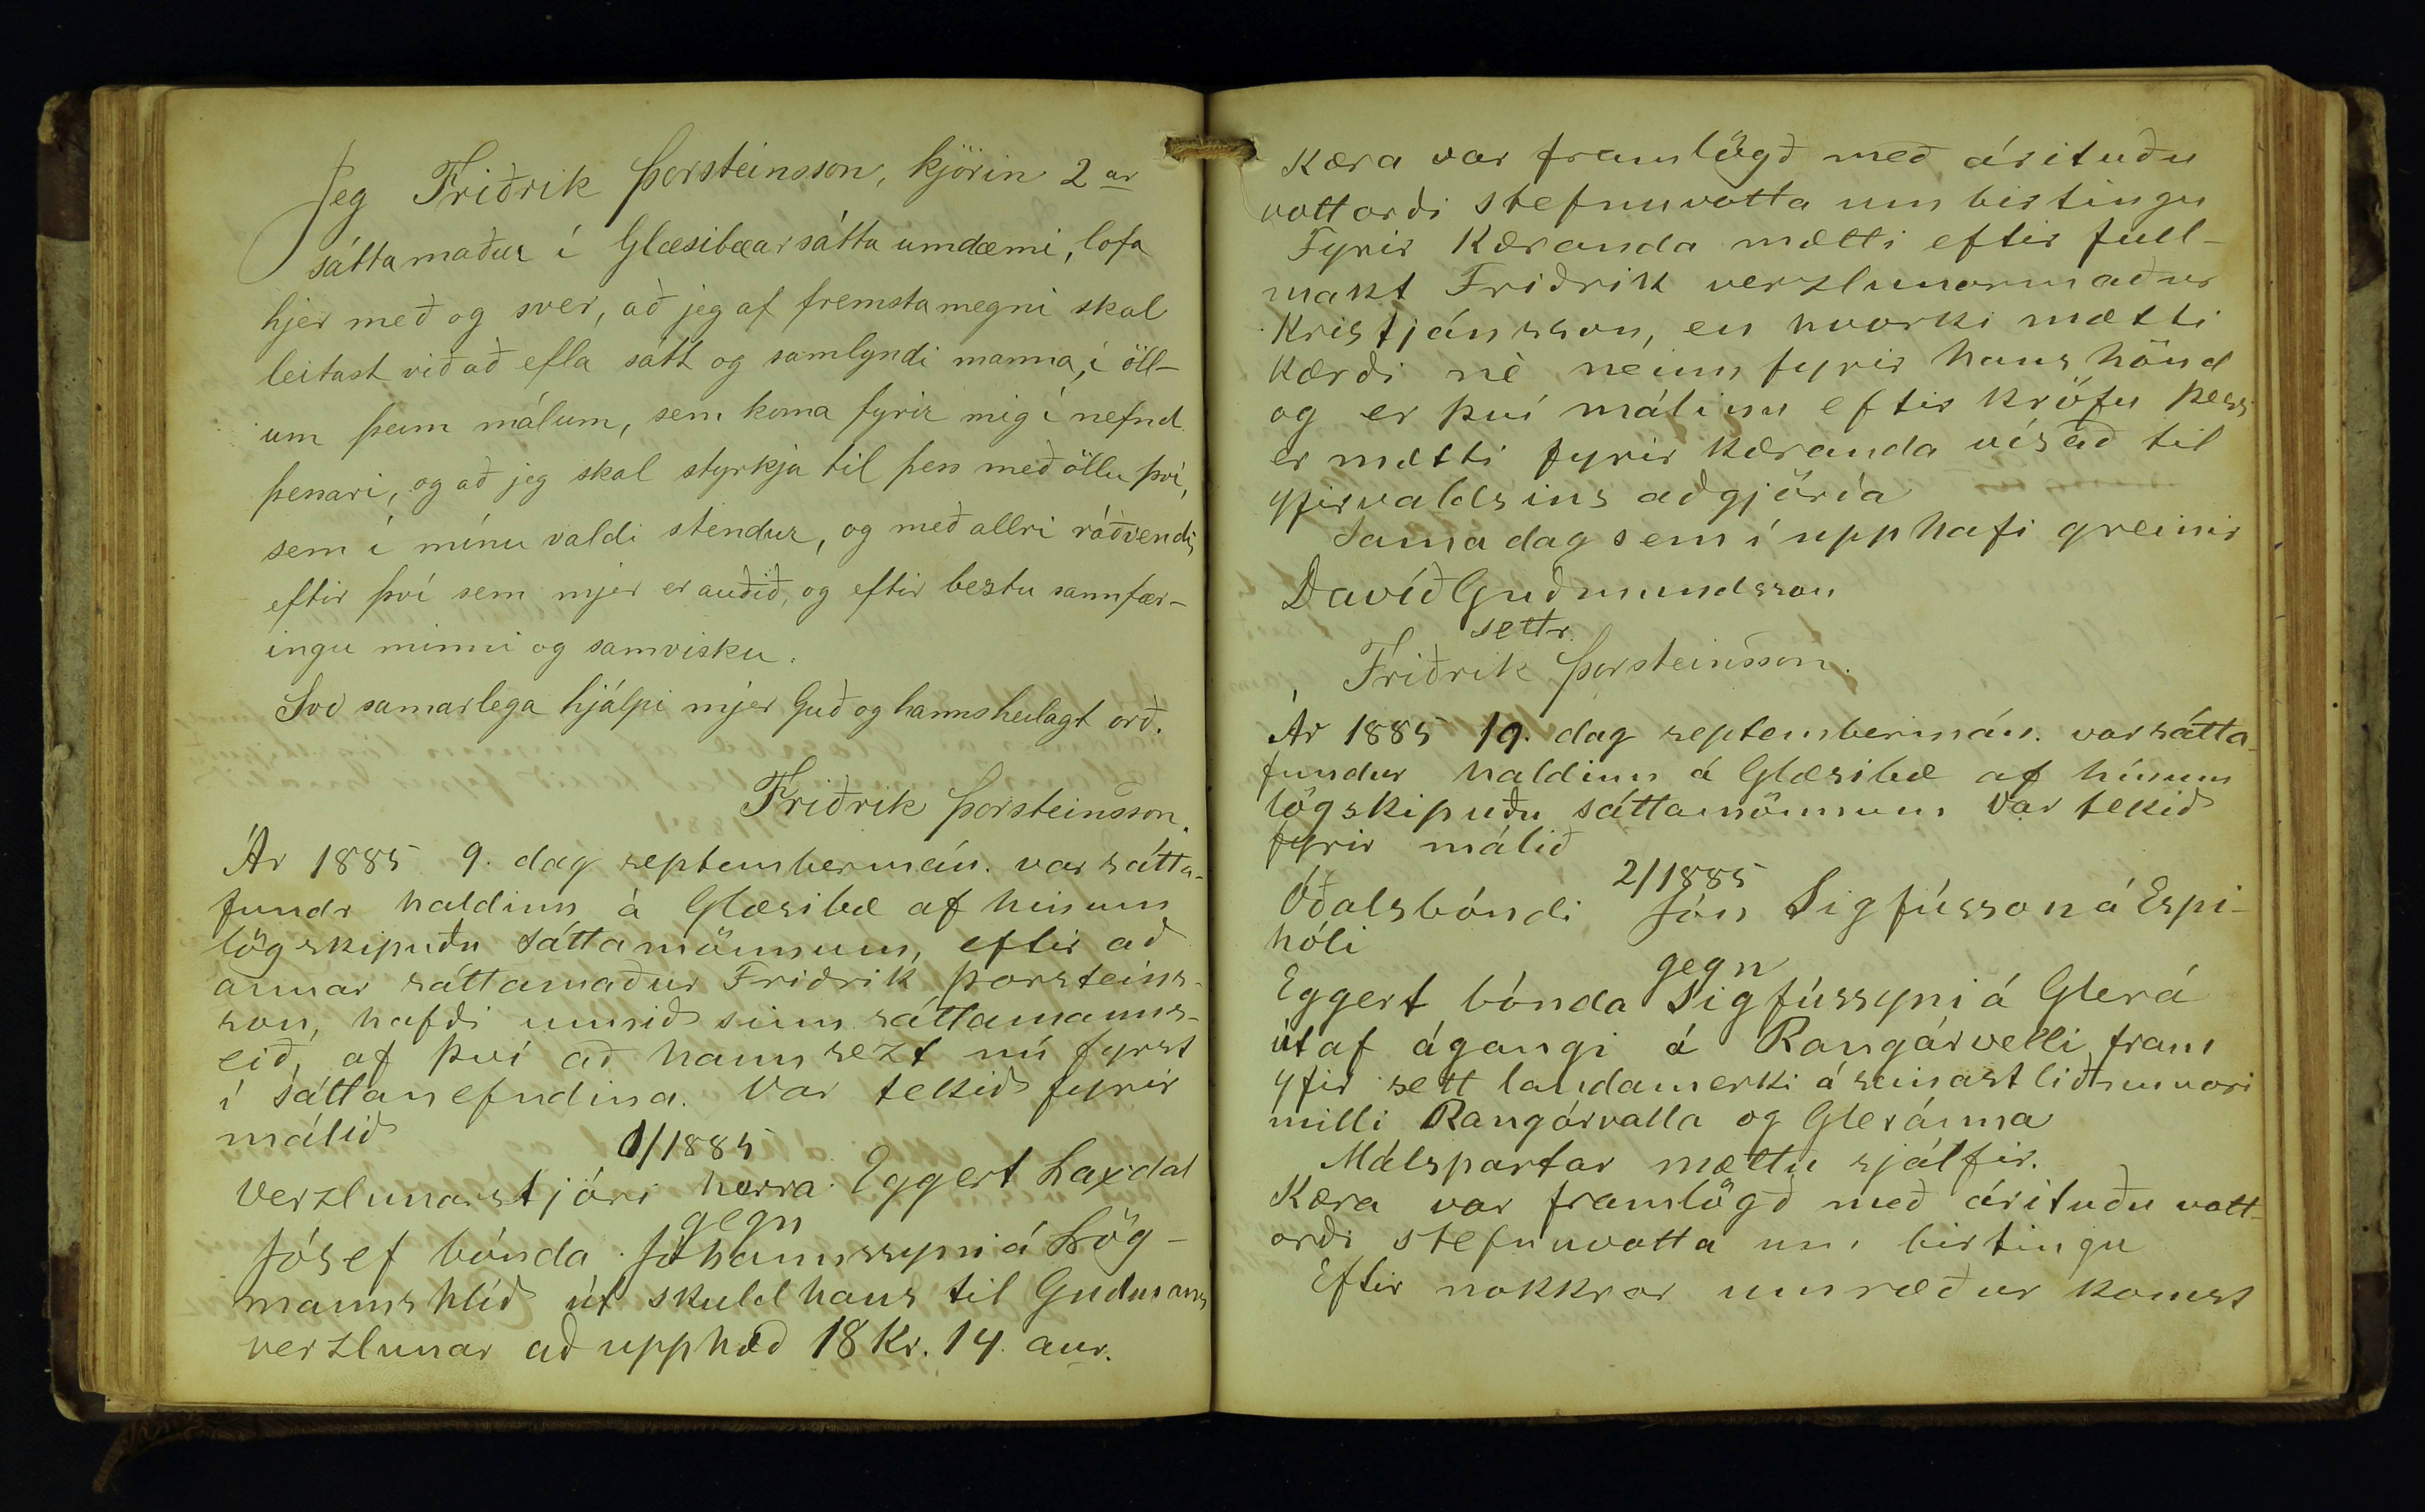 Jeg Friðrik Þorsteinsson, kjörin 2ar
sáttamaður í Glæsibæarsáttaumdæmi, lofa
hjer með og sver, að jeg af fremsta megni skal
leitast við að efla sátt og samlyndi manna, í öll-
um þeim málum, sem koma fyrir mig í nefnd
þessari, og að jeg skal styrkja til þess með öllu því,
sem í mínu valdi stendur, og með allri ráðvendni,
eftir því sem mjer er auðið, og eftir bestu sannfær-
ingu minni og samvisku.
Svo sannarlega hjálpi mjer Guð og hanns heilagt orð.
Friðrik Þorsteinsson.
Ár 1885 9. dag septembermán. var sátta-
fundr haldinn á Glæsibæ af hinum
lögskipuðu sáttamönnum, eftir að
annar sáttamaður Friðrik Þorsteins-
son, hafði unnið sinn sáttamanns-
eið, af því að hann sezt nú fyrst
í sáttanefndina. Var tekið fyrir
málið
1/1885
Verzlunarstjóri herra Eggert Laxdal
gegn
Jósef bónda Jóhannssyni á Lög-
mannshlíð út skuld hans til Gudmanns
verzlunar að upphæð 18 Kr. 14 aur.
Kæra var framlögð með árituðu
vottorði stefnuvotta um birtingu
Fyrir Kæranda mætti eftir full-
makt Friðrik verzlunarmaður
Kristjánsson, en hvorki mætti
Kærði né neinn fyrir hans hönd
og er því málinu eftir kröfu þess
er mætti fyrir kæranda vísað til
yfirvaldsins aðgjörða
Sama dag sem í upphafi greinir
Davíð Guðmundsson
settr.
Friðrik Þorsteinsson.
Ár 1885 19. dag septembermán. var sátta-
fundur haldinn á Glæsibæ af hinum
lögskipuðu sáttamönnum Var tekið
fyrir málið
2/1885
Óðalsbóndi Jón Sigfússon á Espi-
hóli
gegn
Eggert bónda Sigfússyni á Glerá
útaf ágangi á Rangárvelli fram
yfir sett landamerki á seinastliðnu vori
milli Rangárvalla og Gleránna
Málspartar mættu sjálfir.
Kæra var framlögð með árituðu vott-
orði stefnuvotta um birtingu
Eftir nokkrar umræður komst